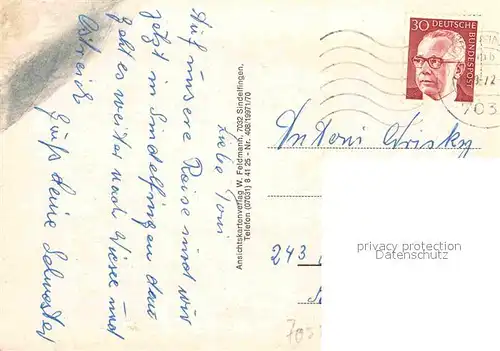 Liebe Toni
Auf unsere Reise sind wir
jetzt in Sindelfingen dann
geht es weiter nach Wien und
Gruß Deine Schwester
Ansichtskartenverlag W. Feldmann, 7032 Sindelfingen,
Telefon (07031) 8 41 25 - Nr. 408/19971/70
30 DEUTSCHE
BUNDESPOST
703
Antoni
243
privacy protection
Datenschutz